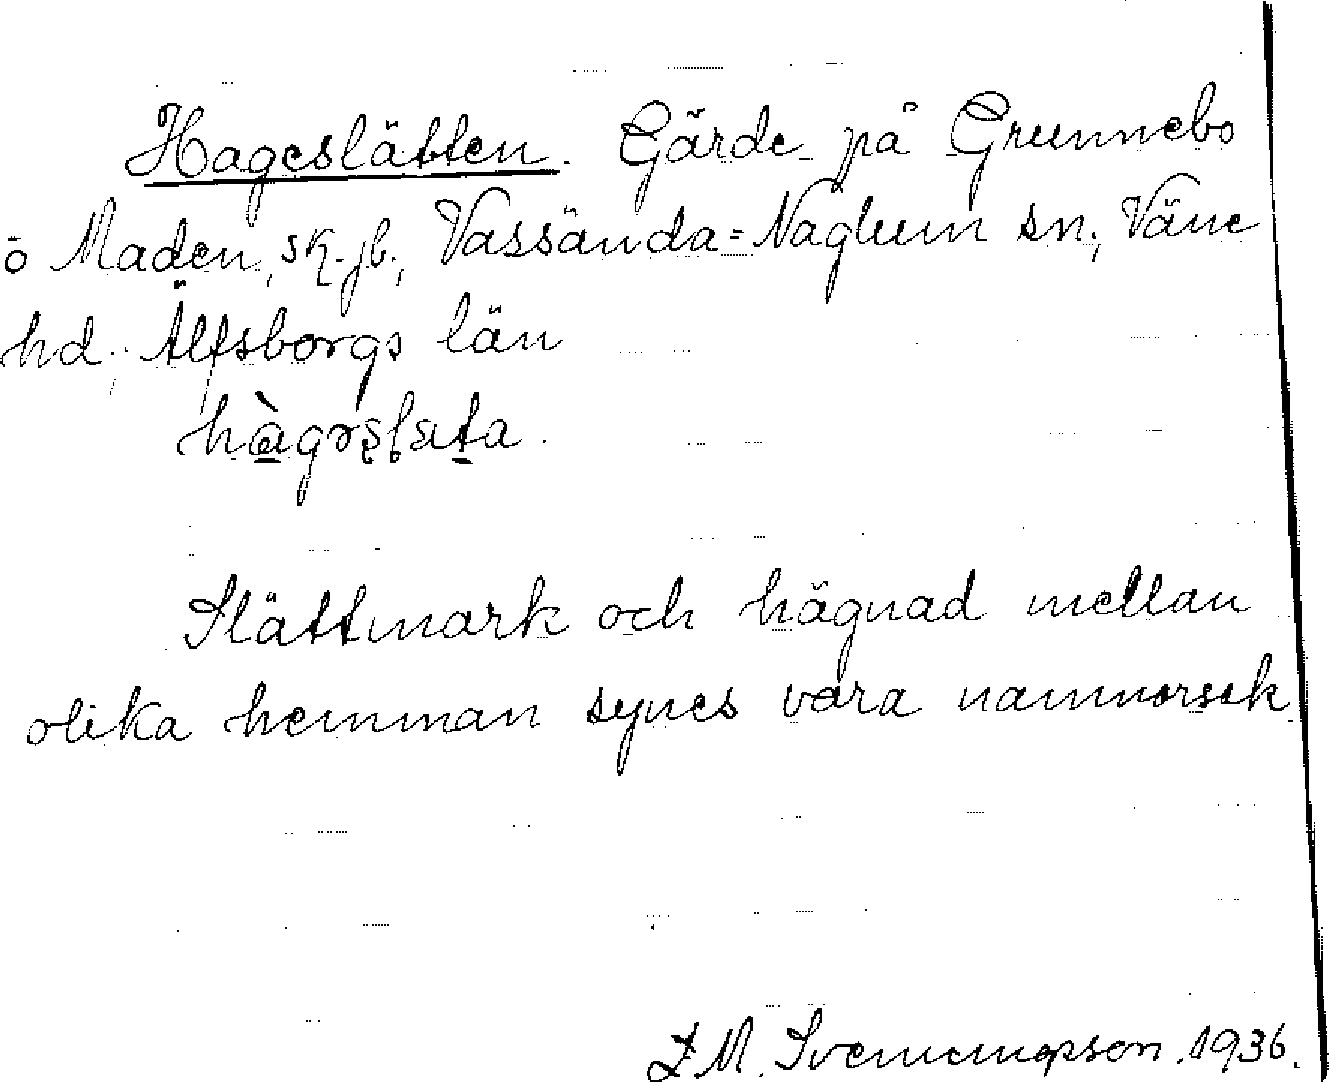 Hageslätten. Gärde på Grunnebo
o Maden, sk. jb., Vassända=Naglum sn., Väne
hd., Älfsborgs län
Slättmark och hägnad mellan
olika hemman synes vara namnorsak
M. 1936.